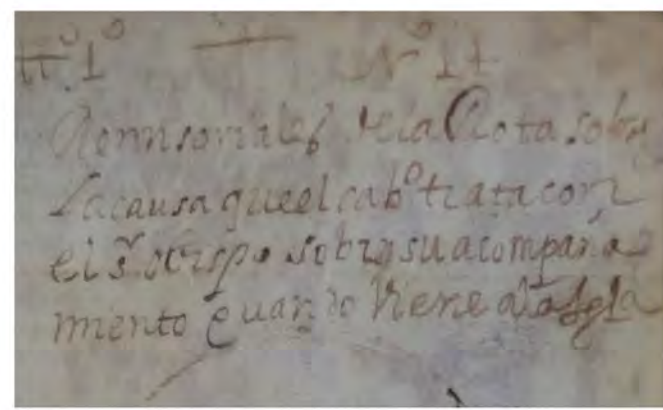 tt.º 1º Nº 14
Remisoriales de la Rota sobre
la causa que el cabº trata con
el sr. obispo sobre su acompaña
miento quando viene a la yglª